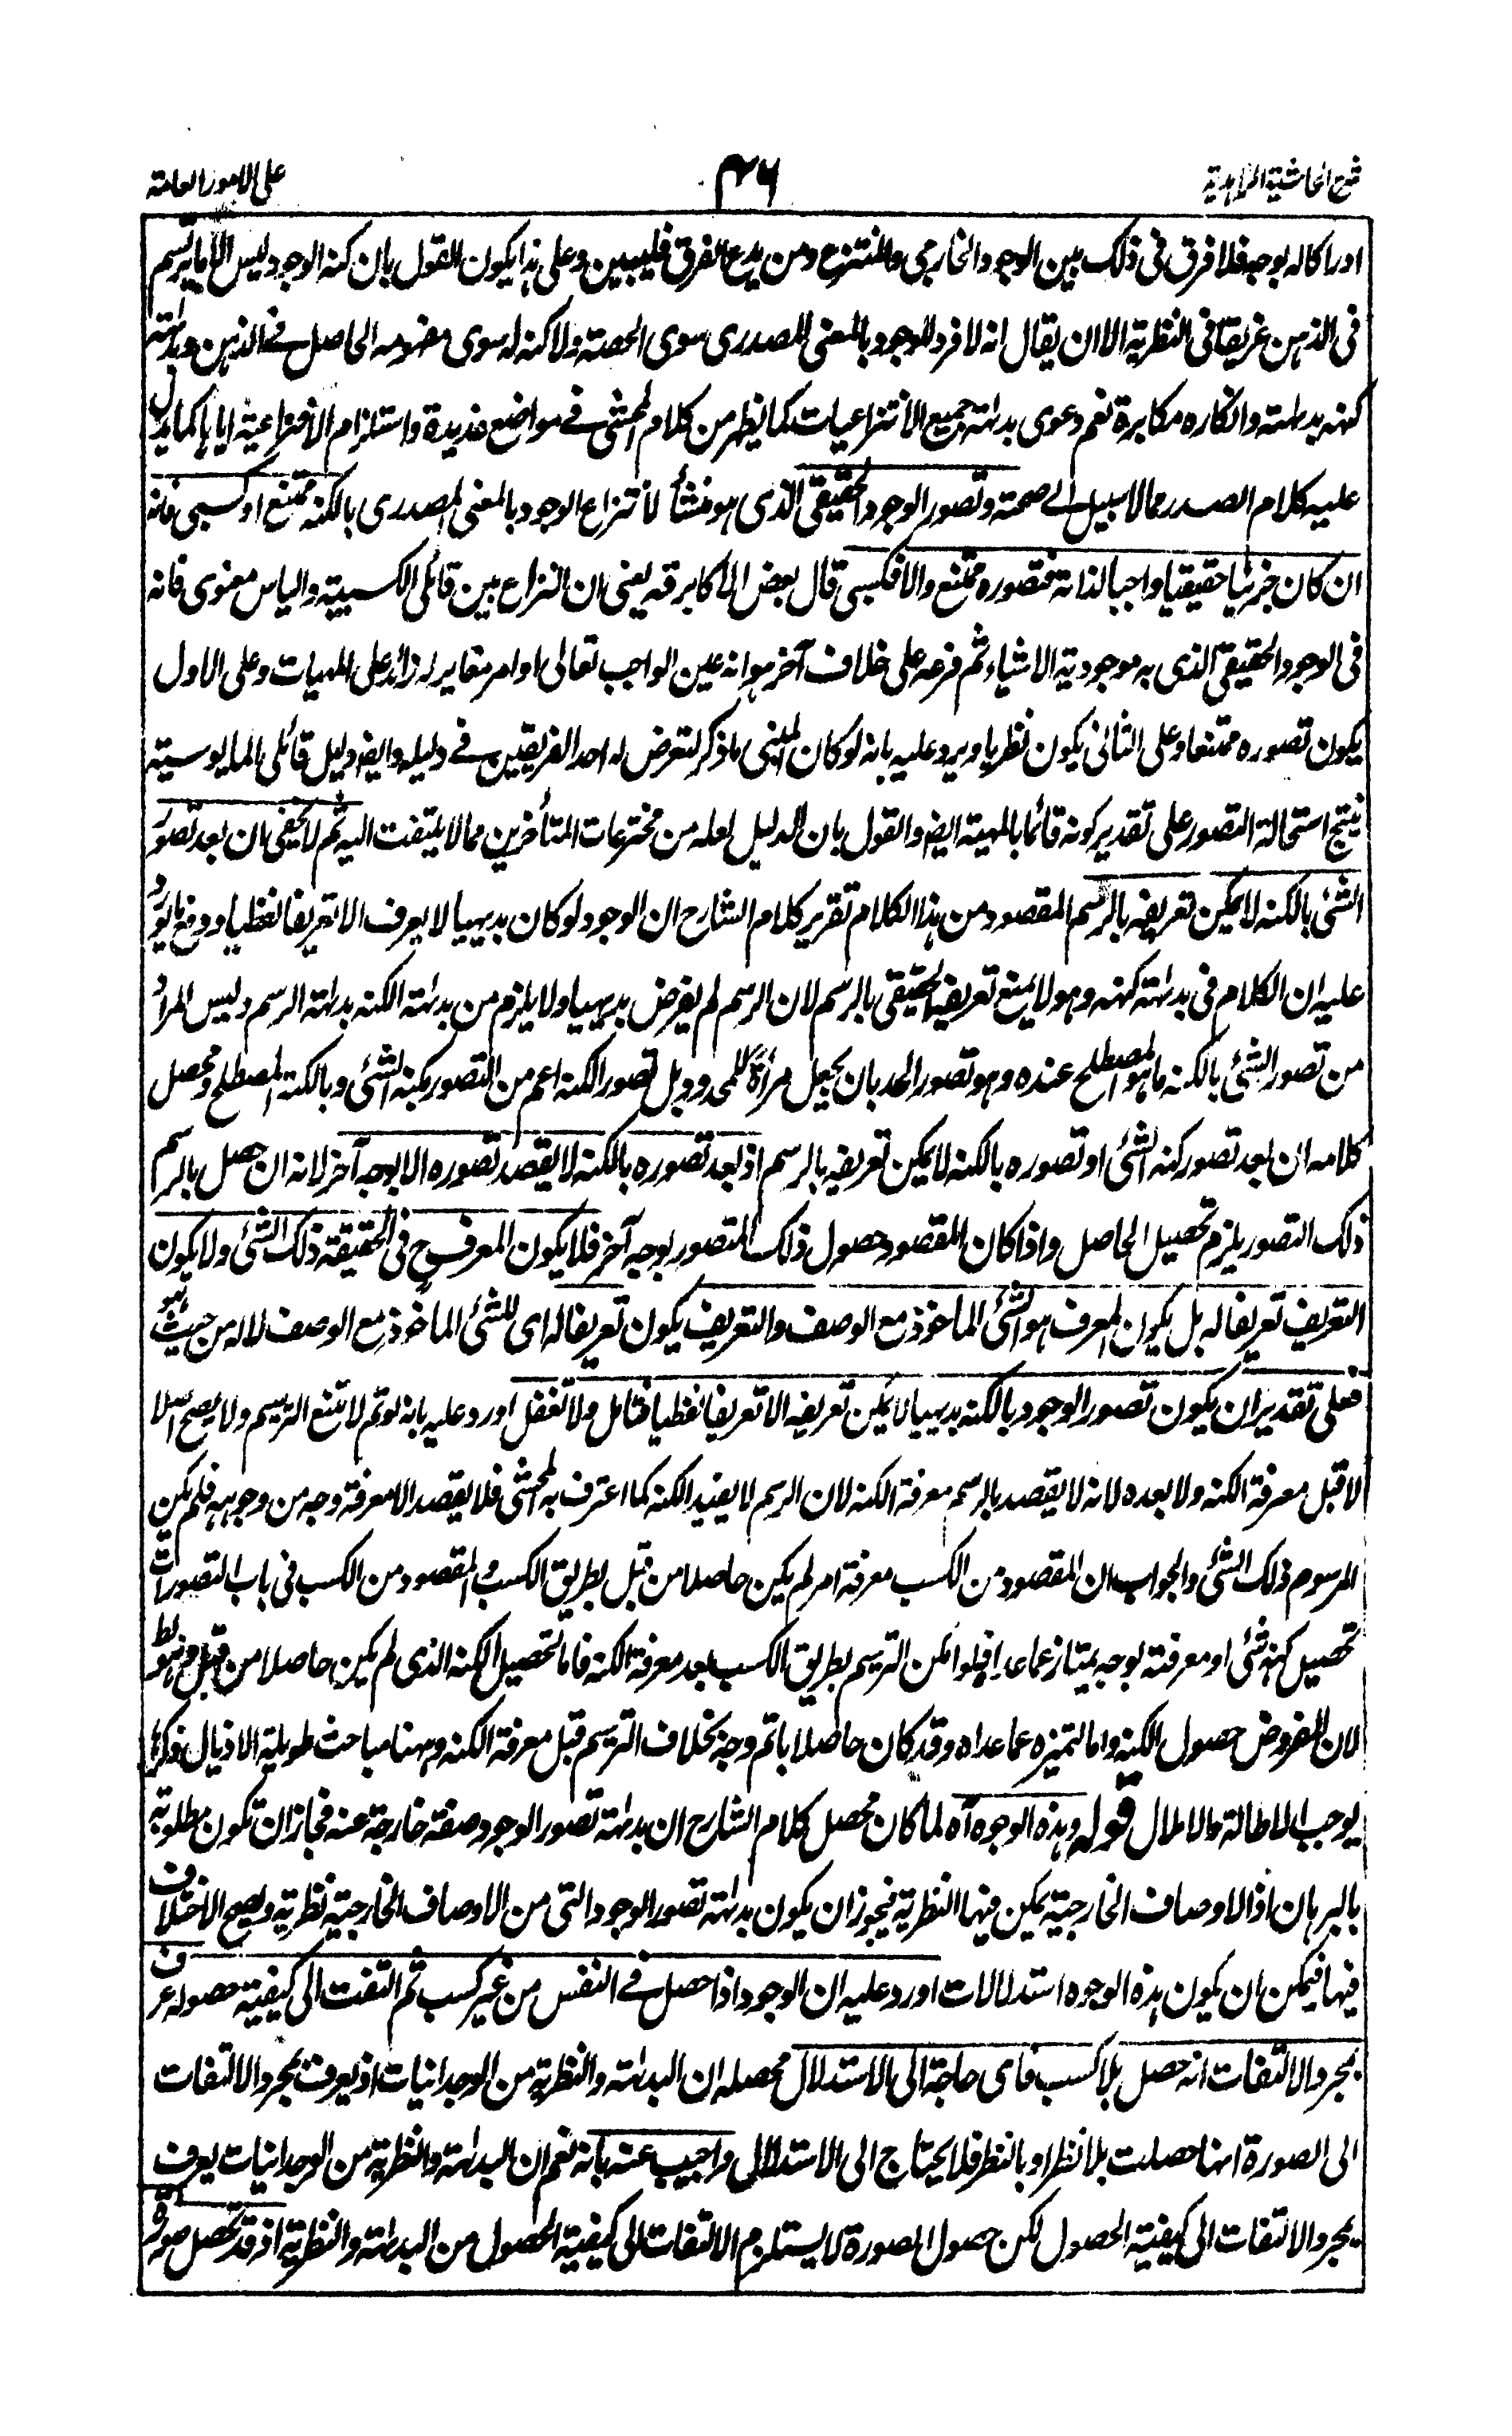 شرح الحاشية الزاهدية
٣٦
على الامور العامة
ادراكا له بوجه فلا فرق في ذلك بين الوجود الخارجي والمنتزع ومن يدع الفرق فليبين وعلى هذا يكون القول بان كنه الوجود ليس الا ما يرتسم
في الذهن غريقا في النظرية الا ان يقال انه لا فرد للوجود بالمعنى المصدري سوى الحصة ولا كنه له سوى مفهومه الحاصل في الذهن وبداهته
كنهه بداهته وانكاره مكابرة نعم دعوى بداهة جميع الانتزاعيات كما يظهر من كلام المحشي في مواضع عديدة واستلزام الانتزاعية اياها كما يدل
عليه كلام الصدر مما لا سبيل الى صحته وتصور الوجود الحقيقي الذي هو منشأ لانتزاع الوجود بالمعنى المصدري بالكنه ممتنع او كسبي فانه
ان كان جزئيا حقيقيا واجبا لذاته فتصوره ممتنع والا فكسبي قال بعض الاكابر قه يعني ان النزاع بين قائلي الكسبية والياس معنوي فانه
في الوجود الحقيقي الذي به موجودية الاشياء ثم فرعه على خلاف آخر هو انه عين الواجب تعالى او امر مغاير له زائد على المهيات وعلى الاول
يكون تصوره ممتنعا وعلى الثاني يكون نظريا ويرد عليه بانه لو كان المبنى ما ذكر لتعرض له احد الفريقين في دليله وايضا دليل قائلي المايوسية
ينتج استحالة التصور على تقدير كونه قائما بالمهية ايضا والقول بان الدليل لعله من مخترعات المتأخرين مما لا يلتفت اليه ثم لا يخفى ان بعد تصور
الشئ بالكنه لا يمكن تعريفه بالرسم المقصود من هذا الكلام تقرير كلام الشارح ان الوجود لو كان بديهيا لا يعرف الا تعريفا لفظيا ودفع ما يورد
عليه ان الكلام في بداهة كنهه وهو لا يمنع تعريفه الحقيقي بالرسم لان الرسم لم يفرض بديهيا ولا يلزم من بداهة الكنه بداهة الرسم وليس المراد
من تصور الشئ بالكنه ما هو المصطلح عنده وهو تصور الحد بان يجعل مرآة للمحدود بل تصور الكنه اعم من التصور بكنه الشئ وبالكنه المصطلح ومحصل
كلامه ان بعد تصور كنه الشئ او تصوره بالكنه لا يمكن تعريفه بالرسم اذ بعد تصوره بالكنه لا يقصد تصوره الا بوجه آخر لانه ان حصل بالرسم
ذلك التصور يلزم تحصيل الحاصل واذا كان المقصود حصول ذلك المتصور بوجه آخر فلا يكون المعرف ح في الحقيقة ذلك الشئ ولا يكون
التعريف تعريفا له بل يكون المعرف هو الشئ الماخوذ مع الوصف والتعريف يكون تعريفا له اى للشئ الماخوذ مع الوصف لا له من حيث هو
فعلى تقدير ان يكون تصور الوجود بالكنه بديهيا لا يمكن تعريفه الا تعريفا لفظيا فتامل ولا تغفل اورد عليه بانه لو تم لامتنع الترسيم ولا يصح اصلا
لا قبل معرفة الكنه ولا بعده لانه لا يقصد بالرسم معرفة الكنه لان الرسم لا يفيد الكنه كما اعترف به المحشي فلا يقصد الا معرفة وجه من وجوهه فلم يكن
المرسوم ذلك الشئ والجواب ان المقصود من الكسب معرفة امر لم يكن حاصلا من قبل بطريق الكسب والمقصود من الكسب في باب التصورات
تحصيل كنه شئ او معرفته بوجه يمتاز عما عداه فلو امكن الترسيم بطريق الكسب بعد معرفة الكنه فاما لتحصيل الكنه الذي لم يكن حاصلا من قبل
لان المفروض حصول الكنه واما لتميزه عما عداه وقد كان حاصلا باتم وجه بخلاف الترسيم قبل معرفة الكنه وههنا مباحث طويلة الاذيال ذكرها
يوجب الاطالة والاملال قوله وهذه الوجوه آه لما كان محصل كلام الشارح ان بداهة تصور الوجود صفة خارجة عنه فجاز ان تكون مطلوبة
بالبرهان اذ الاوصاف الخارجية يمكن فيها النظرية فيجوز ان يكون بداهة تصور الوجود التي من الاوصاف الخارجية نظرية ويصح الاختلاف
فيها فيمكن ان يكون هذه الوجوه استدلالات اورد عليه ان الوجود اذا حصل في النفس من غير كسب ثم التفت الى كيفية حصوله عرف
بمجرد الالتفات انه حصل بلا كسب فاى حاجة الى الاستدلال محصله ان البداهة والنظرية من الوجدانيات اذ يعرف بمجرد الالتفات
الى الصورة انها حصلت بلا نظر او بالنظر فلا يحتاج الى الاستدلال واجيب عنه بانه نعم ان البداهة والنظرية من الوجدانيات يعرف
بمجرد الالتفات الى كيفية الحصول لكن حصول الصورة لا يستلزم الالتفات الى كيفية الحصول من البداهة والنظرية اذ قد تحصل صورة